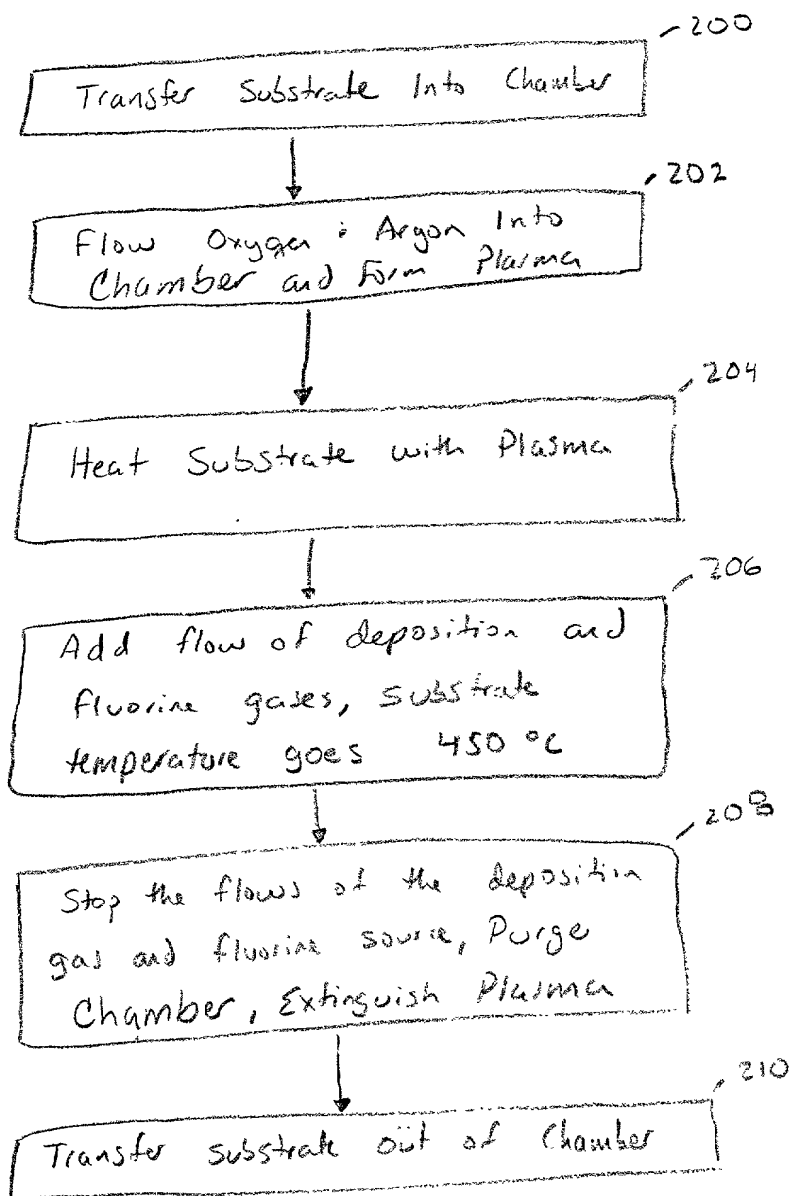 200
Transfer Substrate Into Chamber
202
Flow Oxygen : Argon Into
Chamber and Form Plasma
204
Heat Substrate with Plasma
206
Add flow of deposition and
fluorine gases, substrate
temperature goes 450 °C
208
Stop the flows of the deposition
gas and fluorine source, Purge
Chamber, Extinguish Plasma
210
Transfer substrate out of Chamber